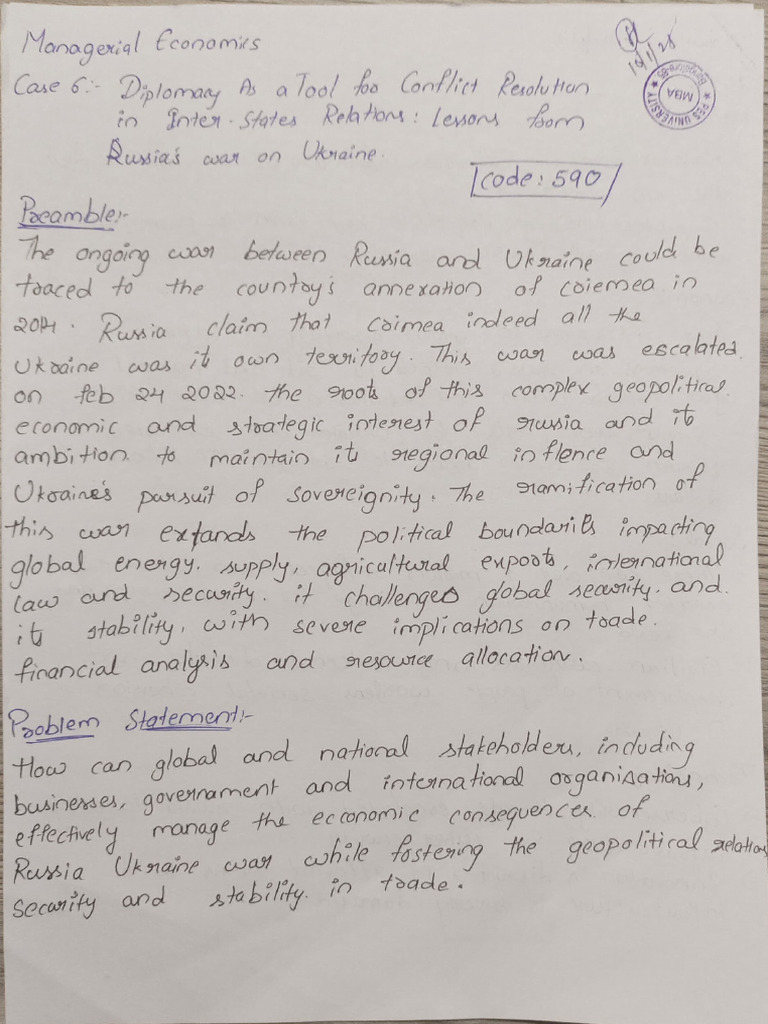 Managerial Economics
Case 6:- Diplomacy As a Tool for Conflict Resolution
in Inter-States Relations: Lessons from
Russia's war on Ukraine.
10/1/25
PES UNIVERSITY
MBA
Code: 590
Preamble:-
The ongoing war between Russia and Ukraine could be
traced to the country's annexation of coiemea in
2014. Russia claim that coimea indeed all the
Ukraine was it own territory. This war was escalated
on feb 24 2022. the roots of this complex geopolitical
economic and strategic interest of russia and it
ambition to maintain it regional inflence and
Ukraine's pursuit of sovereignity. The ramification of
this war extands the political boundaries impacting
global energy, supply, agricultural exports, international
law and security. it challenges global security. and
it stability, with severe implications on trade.
financial analysis and resource allocation.
Problem Statement:-
How can global and national stakeholders, including
businesses, governament and international organisations,
effectively manage the economic consequences of
Russia Ukraine war while fostering the geopolitical relation
security and stability in trade.